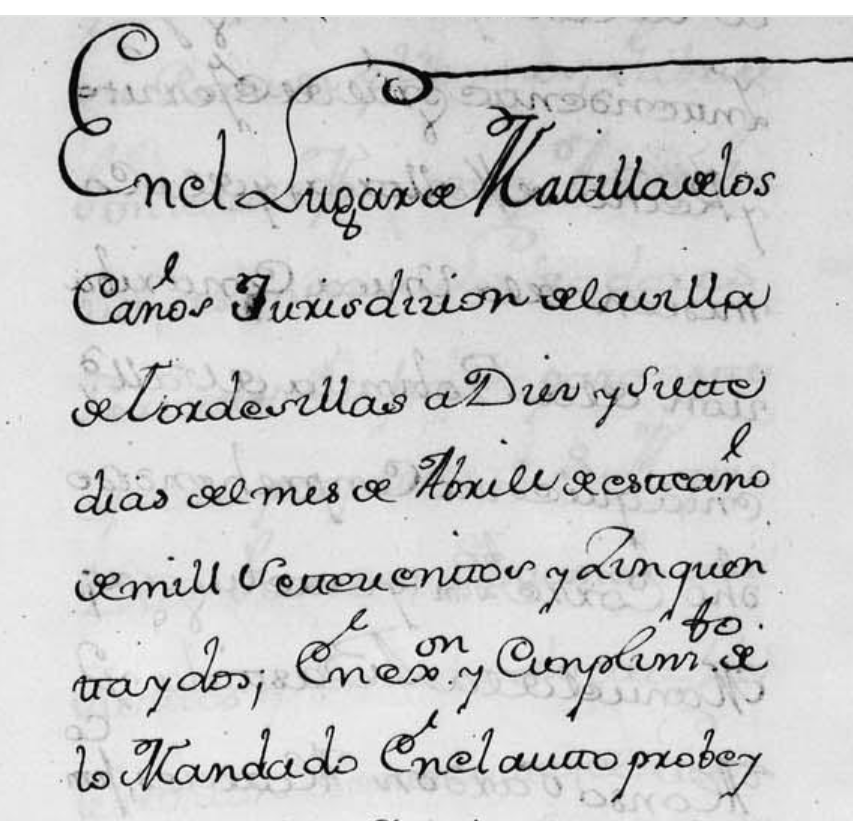 En el Lugar de Mattilla de los
Caños Jurisdizion de la villa
de tordesillas a Diez y siette
dias del mes de Abrill de este año
de mill settezienttos y Zinquen
tta y dos; En exon. y Cunplimto. de
lo Mandado En el autto probey